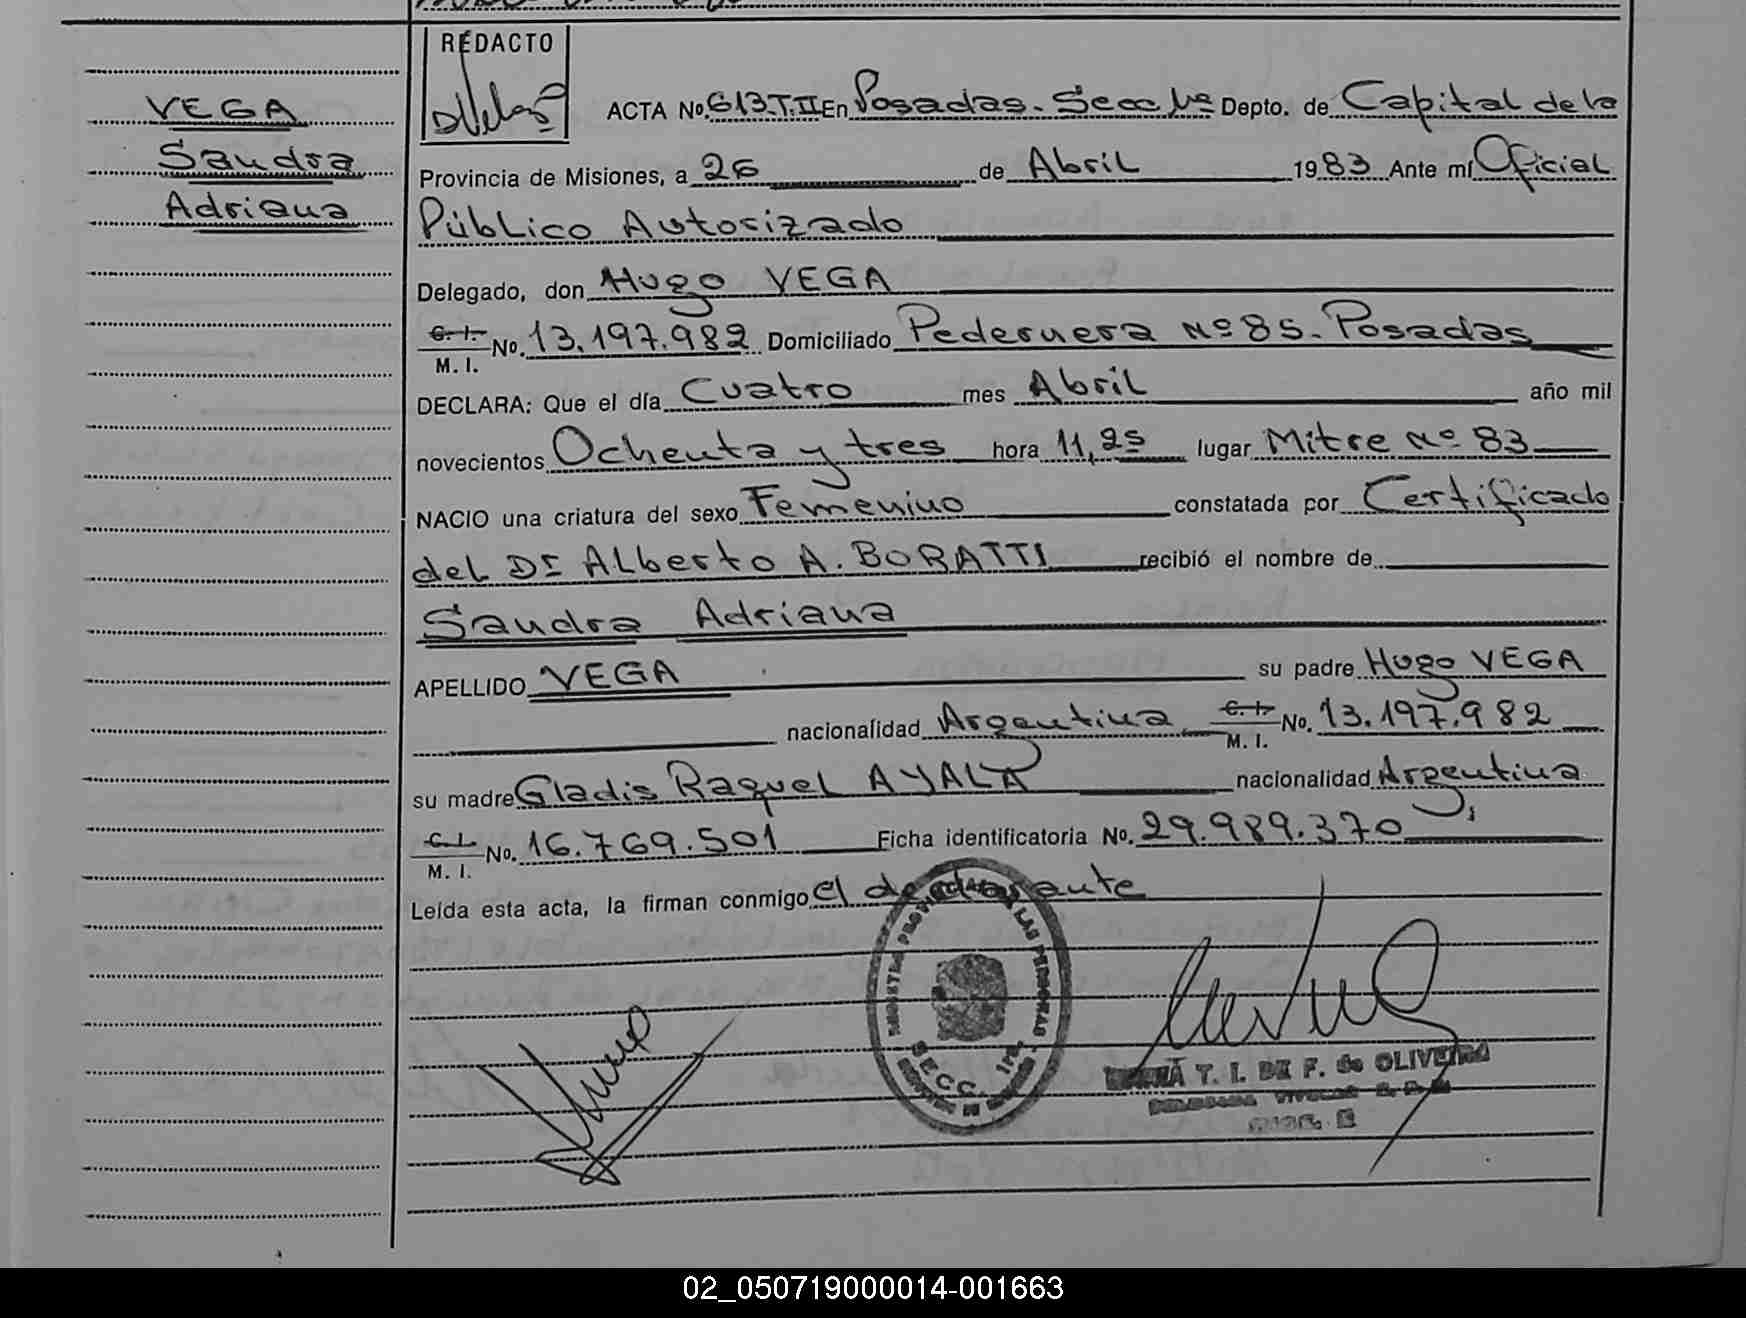 REDACTO
VEGA
Sandra
Adriana
ACTA No. 613.T.II En Posadas. Secc 1ª Depto. de Capital de la
Provincia de Misiones, a 26 de Abril 1983 Ante mí Oficial
Público Autorizado
Delegado, don Hugo VEGA
C. I. M. I. No. 13.197.982 Domiciliado Pedernera Nº 85. Posadas
DECLARA: Que el día Cuatro mes Abril año mil
novecientos Ochenta y tres hora 11,25 lugar Mitre Nº 83
NACIO una criatura del sexo Femenino constatada por Certificado
del Dr Alberto A. BORATTI recibió el nombre de
Sandra Adriana
APELLIDO VEGA su padre Hugo VEGA
nacionalidad Argentina C. I. M. I. No. 13.197.982
su madre Gladis Raquel AYALA nacionalidad Argentina
C. I. M. I. No. 16.769.501 Ficha identificatoria No. 29.989.370
Leída esta acta, la firman conmigo el declarante
REGISTRO PROVINCIAL DE LAS PERSONAS
SECC. 1ra.
T. I. DE F. de OLIVEIRA
02_050719000014-001663